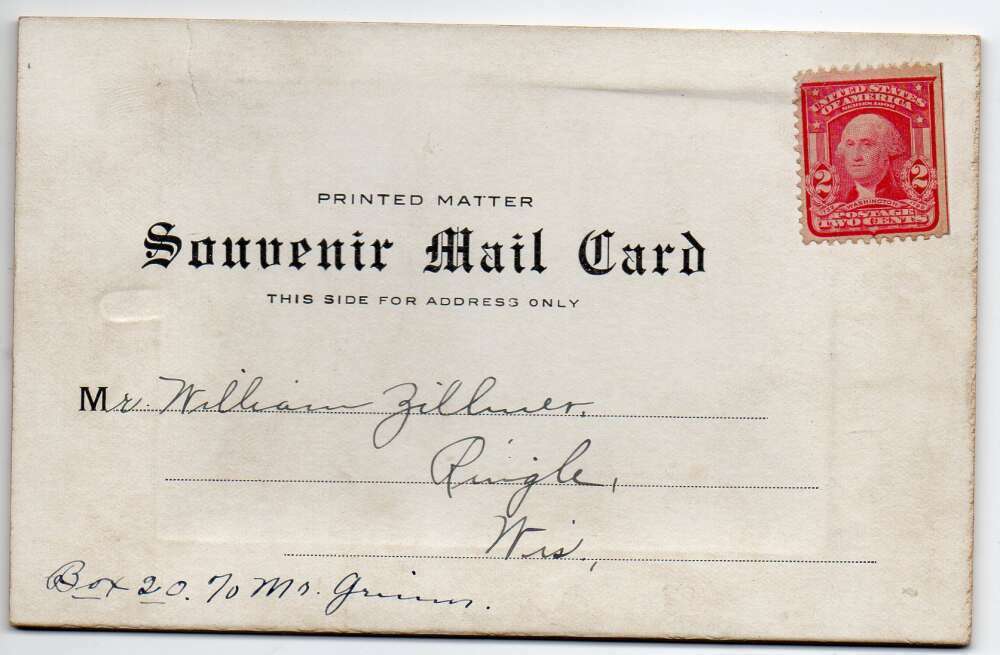 UNITED STATES
OF AMERICA
SERIES 1902
2 2
WASHINGTON
POSTAGE
TWO CENTS
PRINTED MATTER
Souvenir Mail Card
THIS SIDE FOR ADDRESS ONLY
Mr. William Zillmer.
Ringle,
Wis.,
Box 20. % Mr. Grimm.